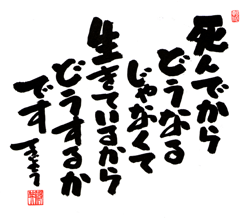 死んでから
どうなる
じゃなくて
生きているから
どうするか
です